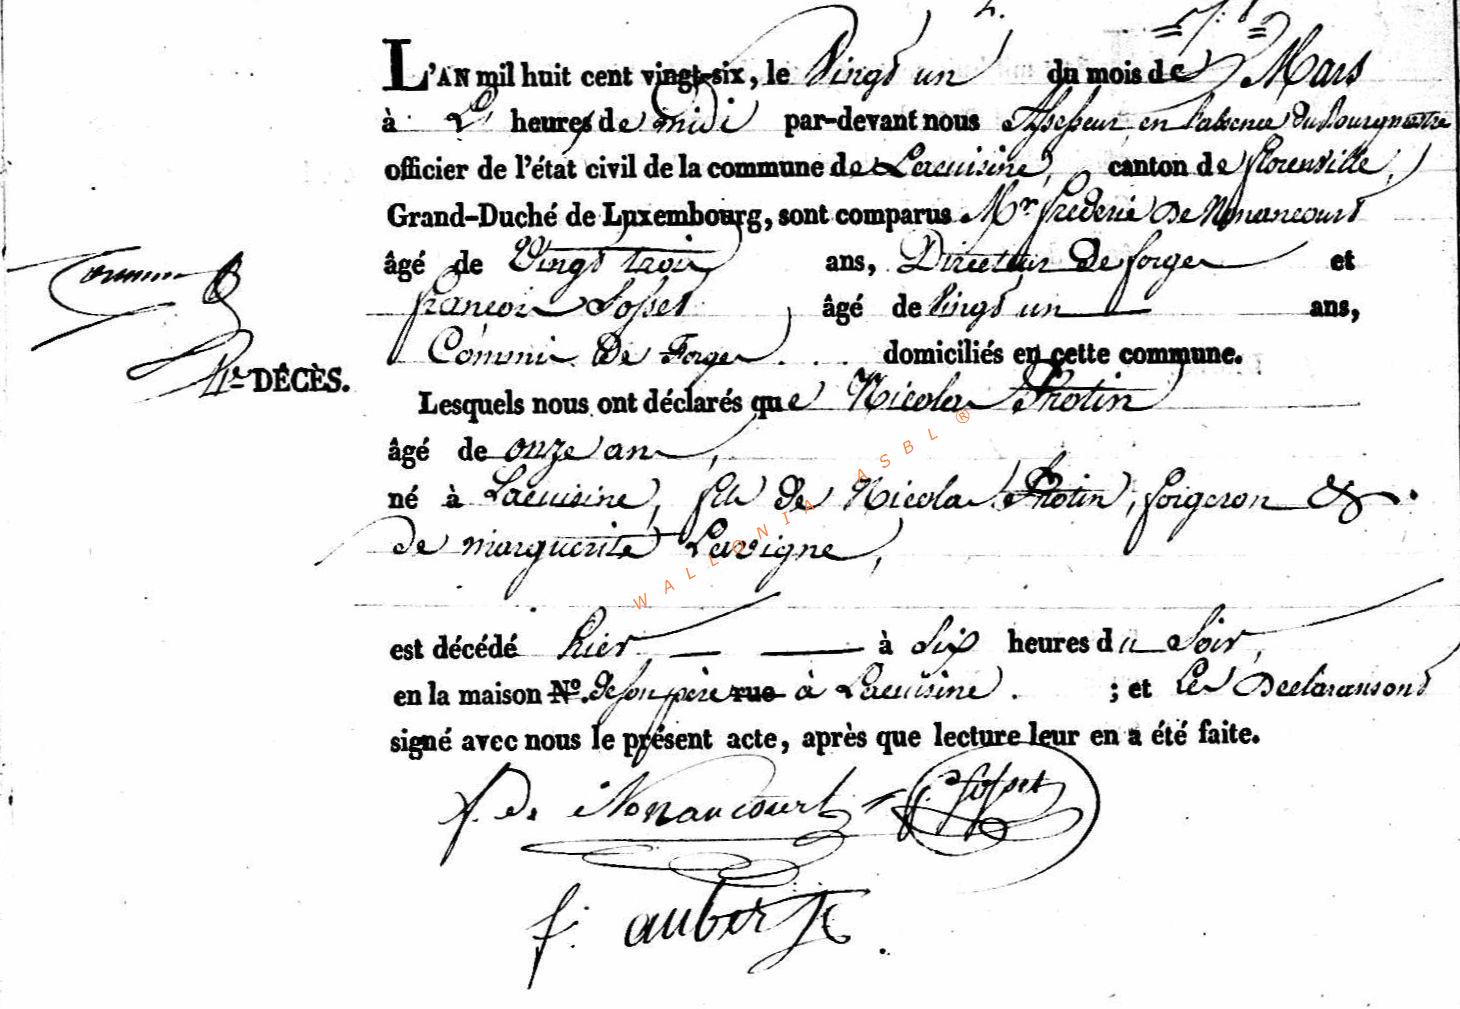 L'AN mil huit cent vingt-six, le Vingt un du mois de Mars
à L' heures de midi par-devant nous Assesseur en l'absence du Bourgmestre
officier de l'état civil de la commune de Lacuisine, canton de florenville,
Grand-Duché de Luxembourg, sont comparus Mr frederic De Nonancourt
âgé de Vingt trois ans, Directeur De forges et
françois Fosset âgé de Vingt un ans,
Commis De Forges domiciliés en cette commune.
DÉCÈS.
Lesquels nous ont déclarés que Nicolas Thotin
âgé de onze ans,
né à Lacuisine, fils de Nicolas Thotin, forgeron &
de marguerite Lavigne,
est décédé hier à Six heures du Soir,
en la maison No. de son père rue à Lacuisine. ; et Les Declarans ont
signé avec nous le présent acte, après que lecture leur en a été faite.
f. De Nonancourt f. fosset
f. aubertx
WALLONIA ASBL ®